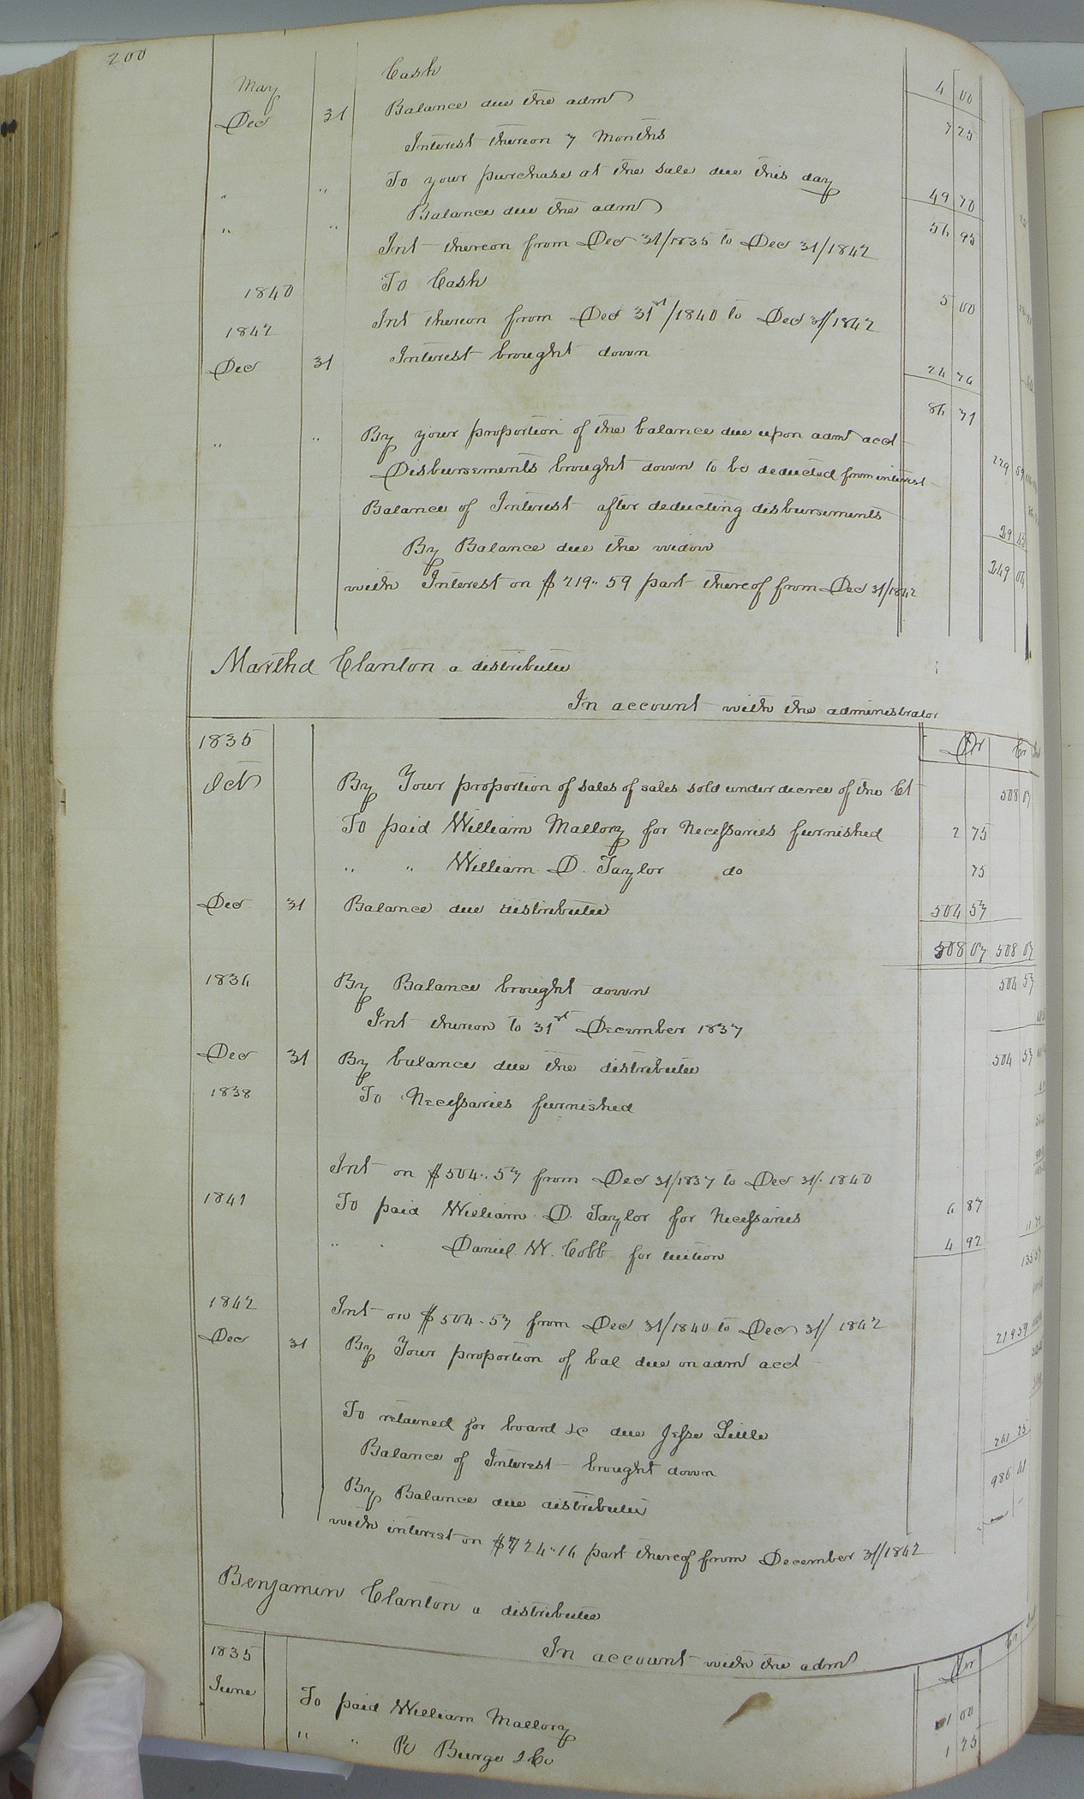 200
Cash 4 00
May
Dec 31 Balance due the admr 7 25
Interest thereon 7 Months
" " To your purchase at the sale due this day 49 70
" " Balance due the admr 56 95
Int thereon from Dec 31/1835 to Dec 31/1842
1840 To Cash 5 00
1842 Int thereon from Dec 31st/1840 to Dec 31/1842
Dec 31 Interest brought down 24 76
86 71
" " By your proportion of the balance due upon admr acct
Disbursements brought down to be deducted from interest
Balance of Interest after deducting disbursements
By Balance due the widow 249 04
with Interest on $219.. 59 part thereof from Dec 31/1842
Martha Clanton a distributee
In account with the administrator
1835 Dr Cr
Oct By Your proportion of sales of sales sold under decree of the Ct 508 07
To paid William Mallory for Necessaries furnished 2 75
" " William D. Taylor do 75
Dec 31 Balance due distributee 504 57
508 07 508 07
1836 By Balance brought down 504 57
Int thereon to 31st December 1837
Dec 31 By balance due the distributee 504 57
1838 To Necessaries furnished
Int on $504.. 57 from Dec 31/1837 to Dec 31/. 1840
1841 To paid William D. Taylor for Necessaries 6 87
" " Daniel W. Cobb for tuition 4 92
1842 Int on $504. 57 from Dec 31/1840 to Dec 31/ 1842
Dec 31 By Your proportion of bal due on admr acct 219 59
To retained for board &c due Jesse Little
Balance of Interest brought down 261 25
By Balance due distributee
with interest on $724.. 16 part thereof from December 31/1842
Benjamin Clanton a distributee
In account with the admr
1835 Dr Cr
June To paid William Mallory 1 00
" " R Burge & Co 1 75